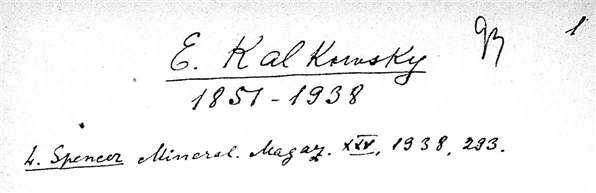 1
E. Kalkowsky
1851-1938
L. Spencer Mineral. Magaz. XXV, 1938, 293.